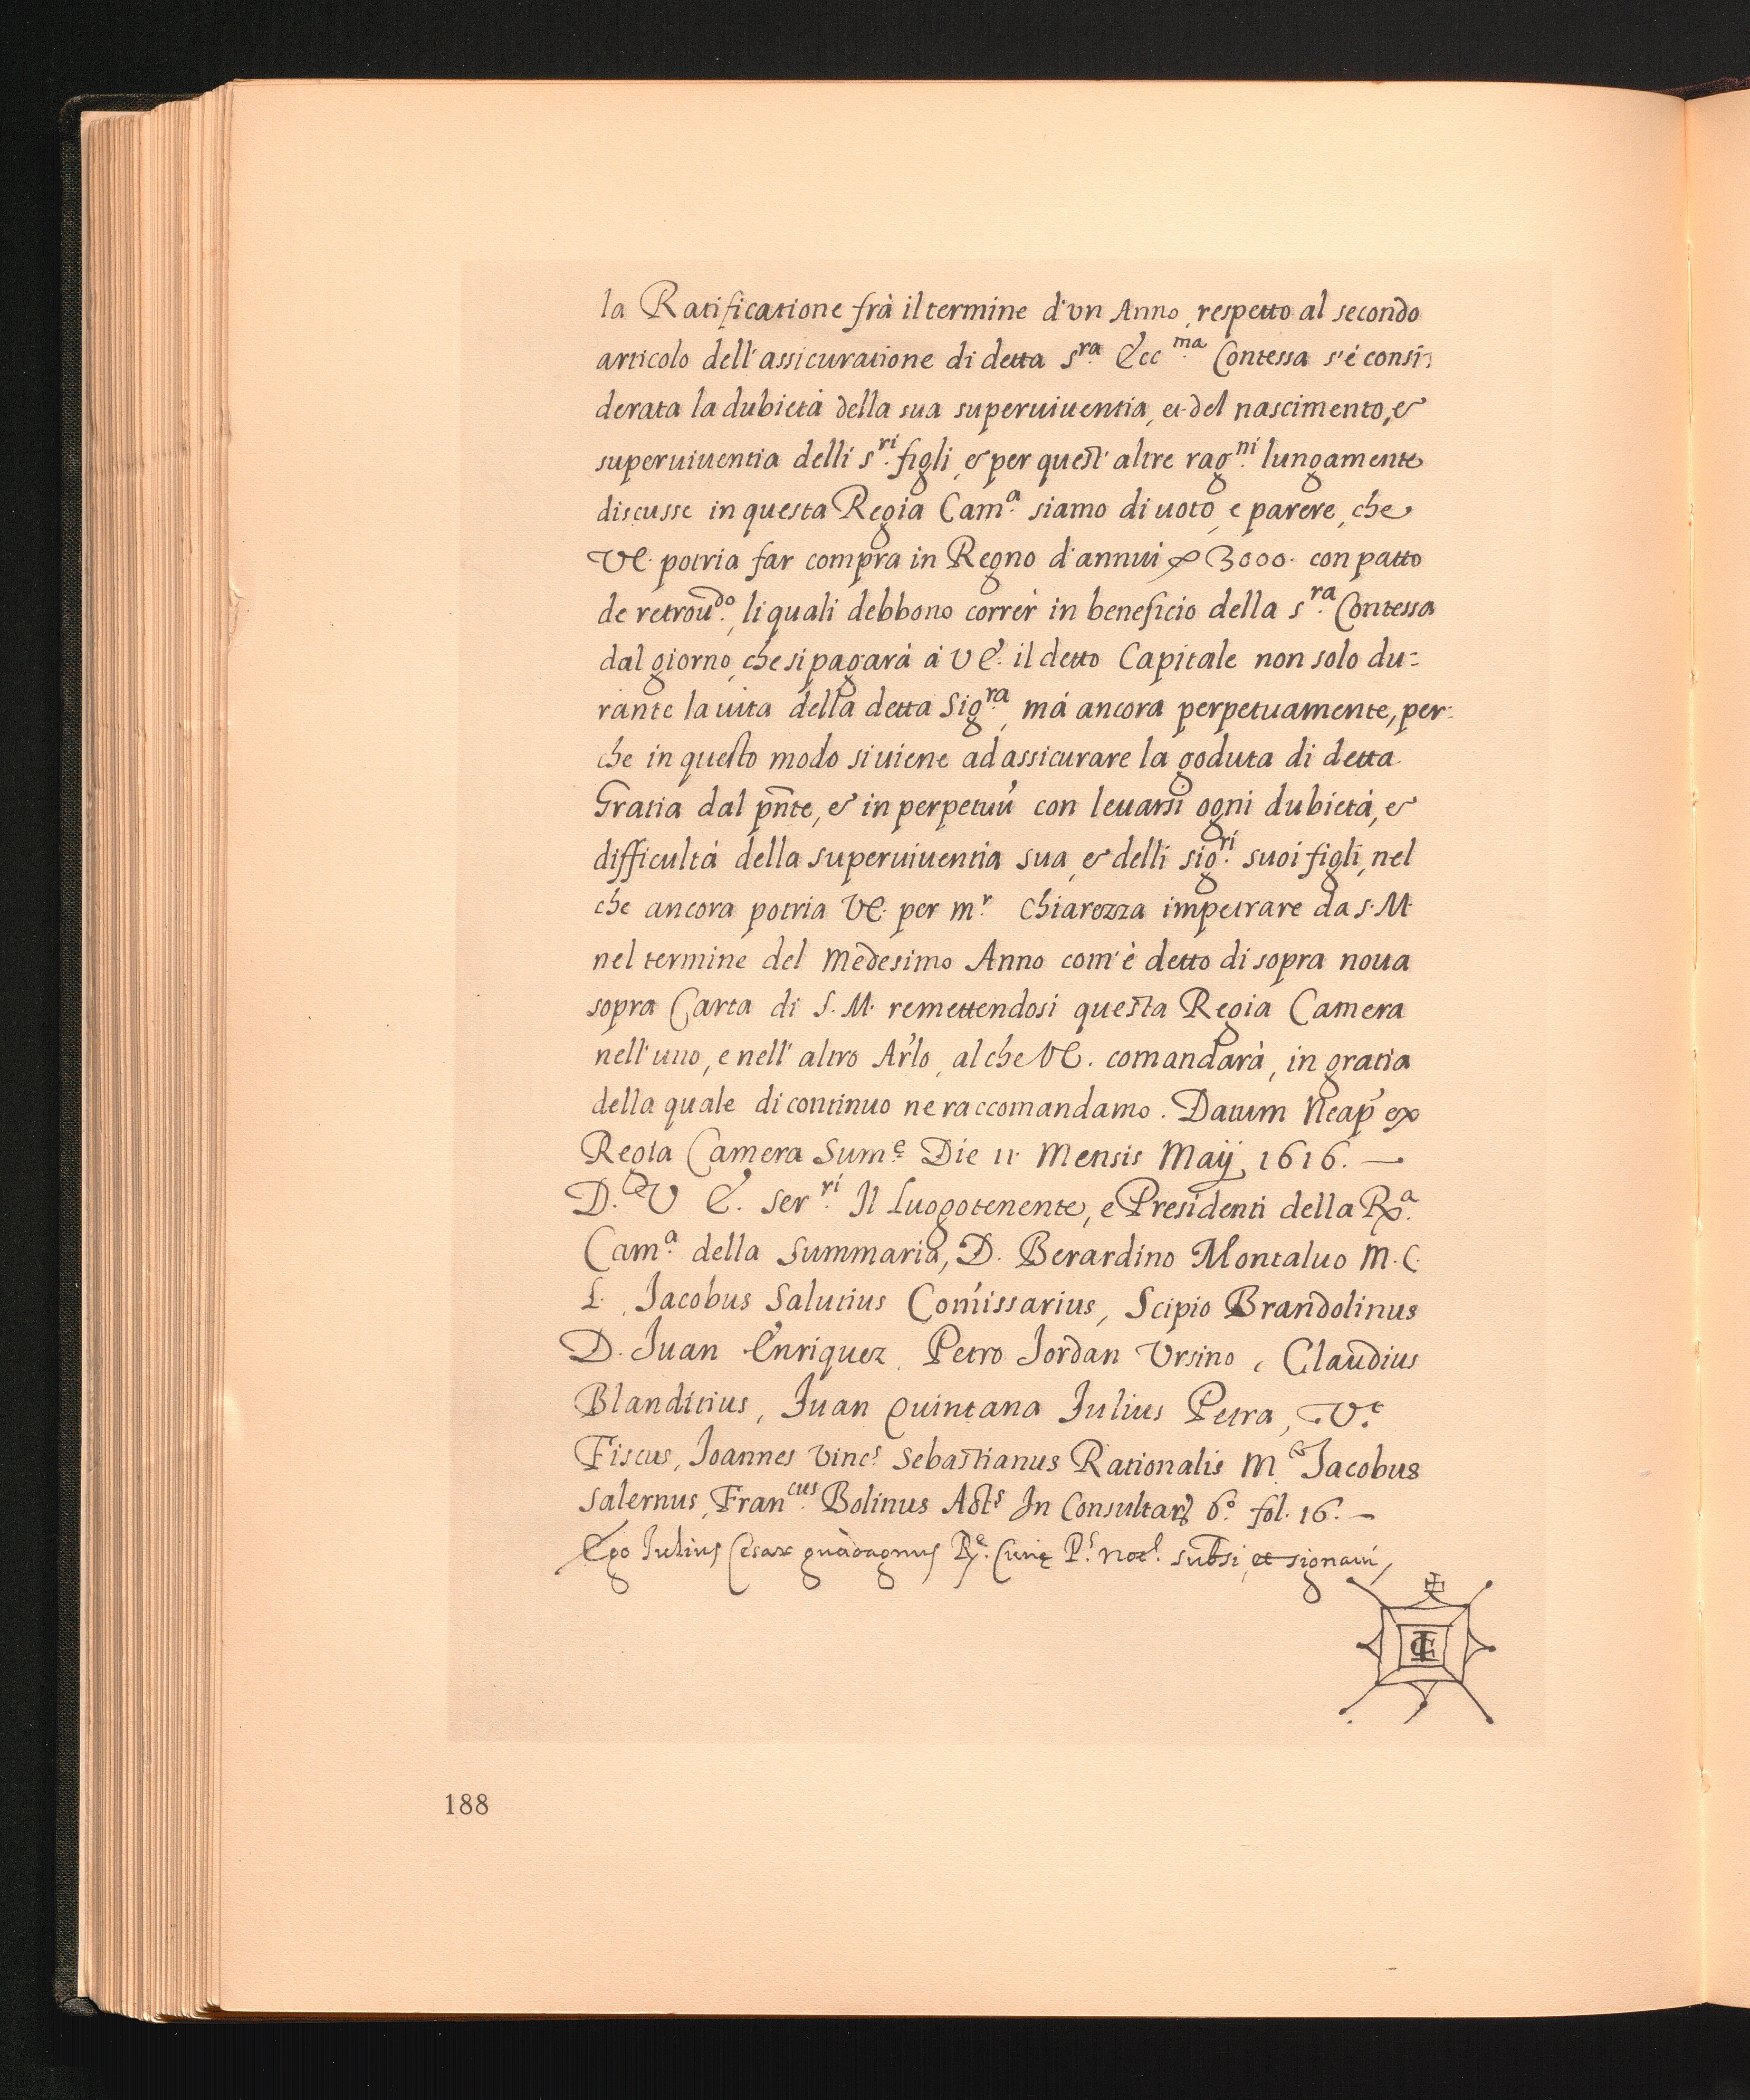 la Ratificatione frà il termine d'vn Anno, respetto al secondo
articolo dell'assicuratione di detta S.ra Ecc.ma Contessa s'è consi:
derata la dubietà della sua superuiuentia, et del nascimento, &
superuiuentia delli S.ri figli, & per quest'altre rag.ni lungamente
discusse in questa Regia Cam.a siamo di uoto, e parere, che
VE. potria far compra in Regno d'annui 3000. con patto
de retrou.do, li quali debbono correr in beneficio della S.ra Contessa
dal giorno, che si pagarà à VE. il detto Capitale non solo du:
rante la uita della detta Sig.ra, mà ancora perpetuamente, per:
che in questo modo si uiene ad assicurare la goduta di detta
Gratia dal pñte, & in perpetuũ con leuarsi ogni dubietà, &
difficultà della superuiuentia sua, & delli sig.ri suoi figli, nel
che ancora potria VE. per m.r Chiarezza impetrare da S.M.
nel termine del medesimo Anno com'è detto di sopra noua
sopra Carta di S.M. remettendosi questa Regia Camera
nell'uno, e nell'altro Ar'lo, al che VE. comandarà, in gratia
della quale di continuo ne raccomandamo. Datum Neap' ex
Regia Camera Sum.e Die 11. Mensis Maij 1616. —
D. V E. Ser.ri Il Luogotenente, e Presidenti della R.a
Cam.a della Summaria, D. Berardino Montaluo M.C.
L. Jacobus Salutius Com̃issarius, Scipio Brandolinus
D. Juan Enriquez, Petro Jordan Vrsino, Claudius
Blanditius, Juan Quintana Julius Petra, V.t
Fiscus, Joannes Vinc.s Sebastianus Rationalis M. Jacobus
Salernus, Fran.cus Bolinus Act.s In Consultar. 6.o fol. 16. —
Ego Julius Cesar guadagnus R.e Curię P. not. subsi, et signaui
188